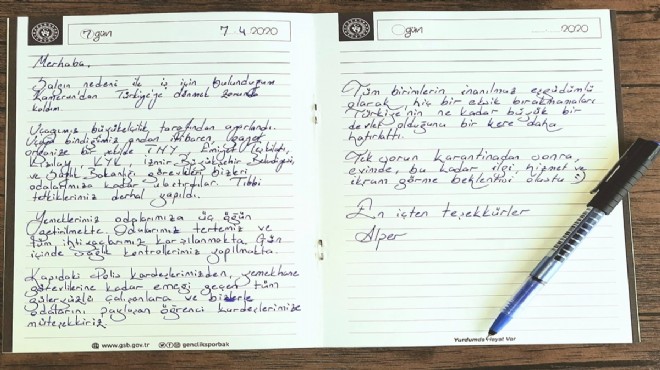 7. gün
7.4.2020
Merhaba,
Salgın nedeni ile iş için bulunduğum
Kamerun'dan Türkiye'ye dönmek zorunda
kaldım.
Uçağımız büyükelçilik tarafından ayarlandı.
Uçağa bindiğimiz andan itibaren, gayet
organize bir şekilde T.H.Y., Emniyet Teşkilatı,
Kızılay, KYK, İzmir Büyükşehir Belediyesi,
ve Sağlık Bakanlığı görevlileri bizleri
odalarımıza kadar ulaştırdılar. Tıbbi
tetkiklerimiz derhal yapıldı.
Yemeklerimiz odalarımıza üç öğün
getirilmekte. Odalarımız tertemiz ve
tüm ihtiyaçlarımız karşılanmakta. Gün
içinde sağlık kontrollerimiz yapılmakta.
Kapıdaki Polis kardeşlerimizden, yemekhane
görevlilerine kadar emeği geçen tüm
güleryüzlü çalışanlara ve bizlerle
odalarını paylaşan öğrenci kardeşlerimize
müteşekkiriz.
www.gsb.gov.tr genclikspor­bak
gün
2020
Tüm birimlerin inanılmaz eşgüdümlü
olarak, hiç bir eksik bırakmamaları
Türkiye'nin ne kadar büyük bir
devlet olduğunu bir kere daha
hatırlattı.
Tek sorun karantinadan sonra,
evimde, bu kadar ilgi, hizmet ve
ikram görme beklentisi oluştu :)
En içten teşekkürler
Alper
Yurdumda Hayat Var